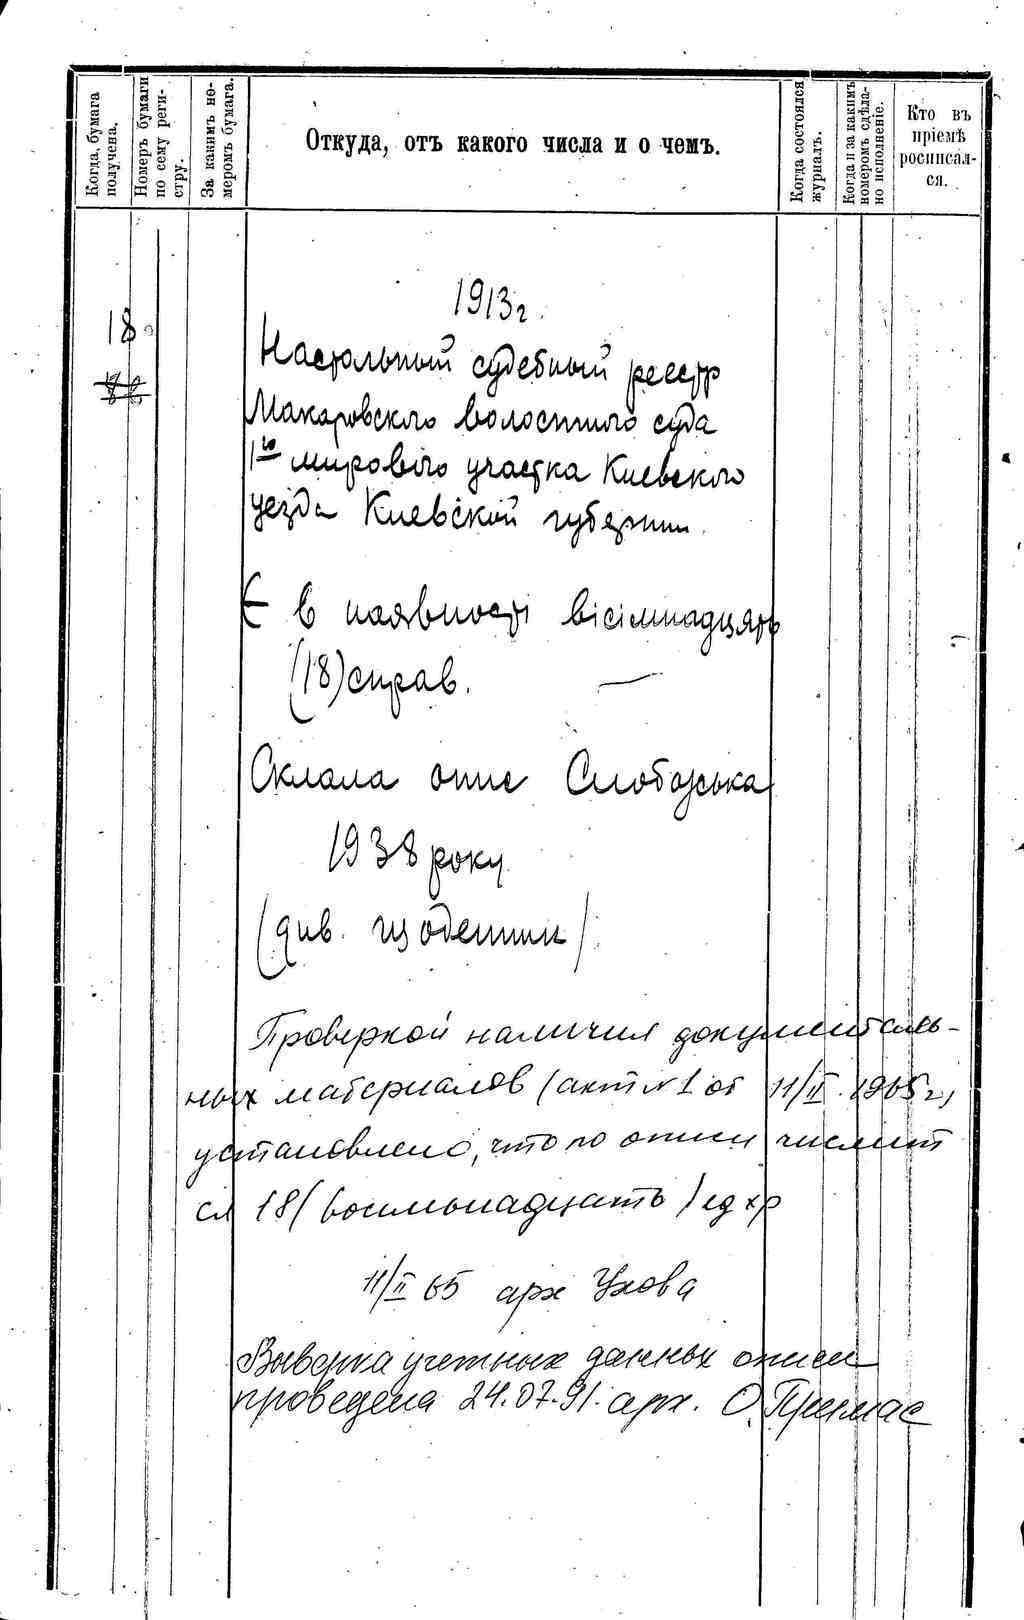 Когда, бумага получена.
Номеръ бумаги по сему реги-стру.
За какимъ но-меромъ бумага.
Откуда, отъ какого числа и о чемъ.
Когда состоялся журналъ.
Когда и за какимъ номеромъ сдѣла-но исполненіе.
Кто въ
пріемѣ
росписал-
ся.
1913г.
18
Настольный судебный реестр
Макаровского волостного суда
1го мирового участка Киевского
уезда Киевской губернии.
Є в наявності вісімнадцять
(18) справ. —
Склала опис Слободська
1938 року
(див. щоденник)
Проверкой наличия документаль-
ных материалов (акт №1 от 11/II.1965г)
установлено, что по описи числит
ся 18 (восемьнадцать) ед хр
11/II 65 арх Ухова
Выверка учетных данных описи
проведена 24.07.91. арх. О. Примас